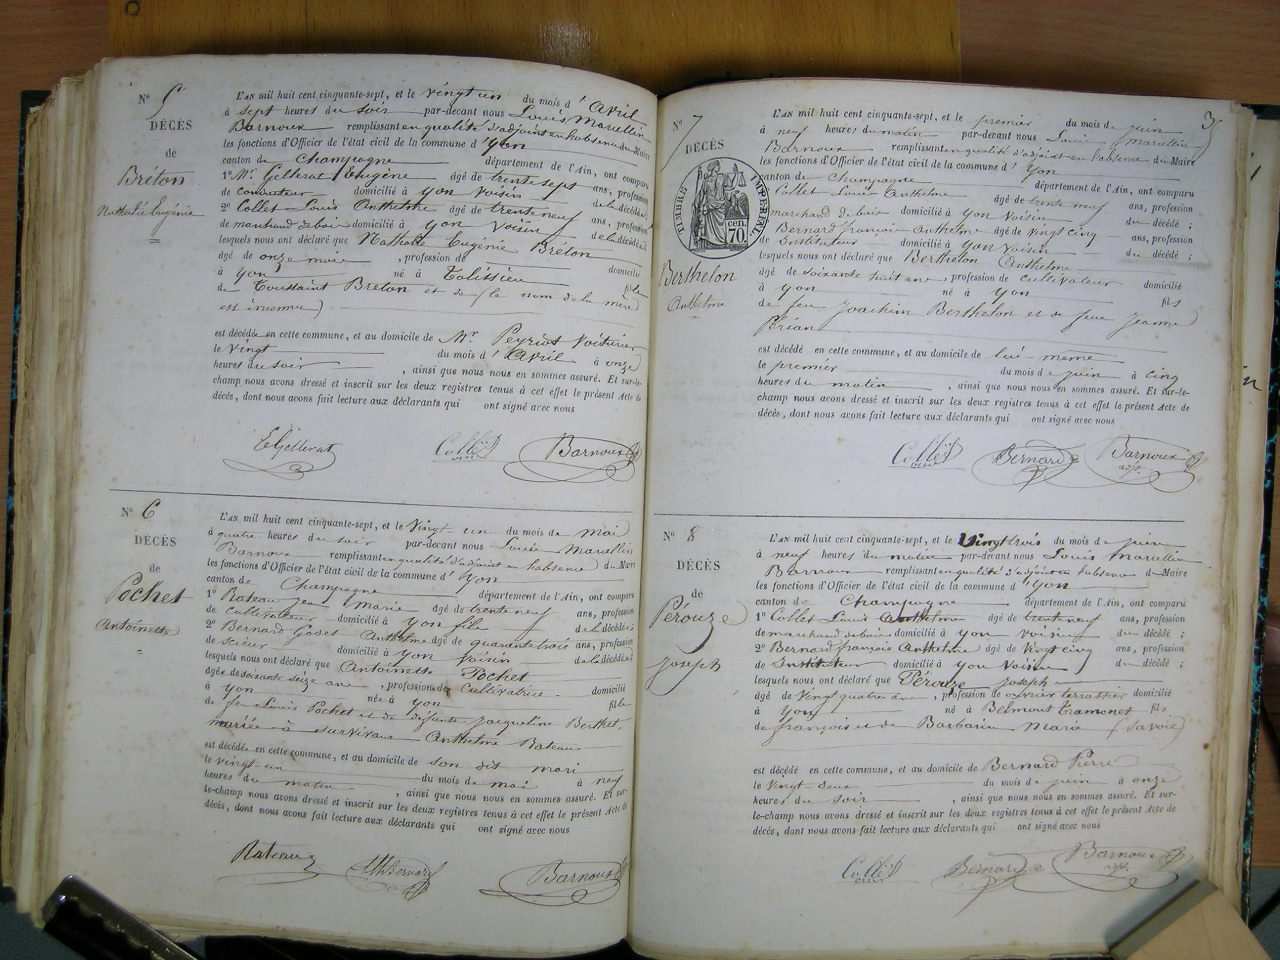 N° 5
DÉCÈS
de
Bréton
Nathalie Eugénie
L'AN mil huit cent cinquante-sept, et le vingt un du mois d'Avril
à sept heures du soir par-devant nous Louis Marcellin
Barnoux remplissant en qualité d'adjoint en habsence du Maire
les fonctions d'Officier de l'état civil de la commune d'Yon
canton de Champagne département de l'Ain, ont comparu
1° Mr. Eugène âgé de trente sept ans, profession
de domicilié à yon voisin de la décédée;
2° Collet Louis Anthelme âgé de trente neuf ans, profession
de marchand de bois domicilié à yon voisin de la décédée;
lesquels nous ont déclaré que Nathalie Eugénie Bréton
âgé de onze mois , profession de domicilié
à yon né à Talissieu fille
de Toussaint Bréton et de (le nom de la mère
est inconnu)
est décédée en cette commune, et au domicile de Mr Peyriot voiturier
le vingt du mois d'Avril à onze
heures du soir , ainsi que nous nous en sommes assuré. Et sur-le-
champ nous avons dressé et inscrit sur les deux registres tenus à cet effet le présent Acte de
décès, dont nous avons fait lecture aux déclarants qui ont signé avec nous
EGellerat Collet Barnoux
N° 6
DÉCÈS
de
Pochet
Antoinette
L'AN mil huit cent cinquante-sept, et le vingt un du mois de mai
à quatre heures du soir par-devant nous Louis Marcellin
Barnoux remplissant en qualité d'adjoint en habsence du Maire
les fonctions d'Officier de l'état civil de la commune d'Yon
canton de Champagne département de l'Ain, ont comparu
1° Rateau Jean Marie âgé de trente neuf ans, profession
de cultivateur domicilié à yon fils de la décédée
2° Bernard Anthelme âgé de quarante trois ans, profession
de scieur domicilié à yon voisin de la décédée;
lesquels nous ont déclaré que Antoinette Pochet
âgée de soixante seize ans , profession de cultivatrice domicilié
à yon née à yon fille
de feu Louis Pochet et de défunte Jacqueline Berthet
mariée à survivant Anthelme Rateau
est décédée en cette commune, et au domicile de son dit mari
le vingt un du mois de mai à neuf
heures du matin , ainsi que nous nous en sommes assuré. Et sur-
le-champ nous avons dressé et inscrit sur les deux registres tenus à cet effet le présent Acte de
décès, dont nous avons fait lecture aux déclarants qui ont signé avec nous
Rateau AthBernard Barnoux
3
N° 7
DÉCÈS
TIMBRE IMPÉRIAL
70 CEN.
Berthelon
Anthelme
L'AN mil huit cent cinquante-sept, et le premier du mois de juin
à neuf heures du matin par-devant nous Louis Marcellin
Barnoux remplissant en qualité d'adjoint en habsence du Maire
les fonctions d'Officier de l'état civil de la commune d'Yon
canton de Champagne département de l'Ain, ont comparu
1° Collet Louis Anthelme âgé de trente neuf ans, profession
marchand de bois domicilié à yon voisin du décédé;
2° Bernard françois Anthelme âgé de vingt cinq ans, profession
de Instituteur domicilié à yon voisin du décédé;
lesquels nous ont déclaré que Berthelon Anthelme
âgé de soixante huit ans , profession de cultivateur domicilié
à yon né à yon fils
de feu Joachim Berthelon et de feue Jeanne
Brian
est décédé en cette commune, et au domicile de lui-même
le premier du mois de juin à cinq
heures du matin , ainsi que nous nous en sommes assuré. Et sur-le-
champ nous avons dressé et inscrit sur les deux registres tenus à cet effet le présent Acte de
décès, dont nous avons fait lecture aux déclarants qui ont signé avec nous
Collet Bernard Barnoux
adj.
N° 8
DÉCÈS
de
Pérouze
Joseph
L'AN mil huit cent cinquante-sept, et le vingt trois du mois de juin
à neuf heures du matin par-devant nous Louis Marcellin
Barnoux remplissant en qualité d'adjoint en habsence du Maire
les fonctions d'Officier de l'état civil de la commune d'Yon
canton de Champagne département de l'Ain, ont comparu
1° Collet Louis Anthelme âgé de trente neuf ans, profession
de marchand de bois domicilié à yon voisin du décédé;
2° Bernard françois Anthelme âgé de vingt cinq ans, profession
de Instituteur domicilié à yon voisin du décédé;
lesquels nous ont déclaré que Pérouze Joseph
âgé de vingt quatre ans , profession de ouvrier terrassier domicilié
à yon né à Belmont Tramonet fils
de françois et de Barbarin Marie (Savoie)
est décédé en cette commune, et au domicile de Bernard Pierre
le vingt deux du mois de juin à onze
heures du soir , ainsi que nous nous en sommes assuré. Et sur-
le-champ nous avons dressé et inscrit sur les deux registres tenus à cet effet le présent Acte de
décès, dont nous avons fait lecture aux déclarants qui ont signé avec nous
Collet Bernard Barnoux
adj.